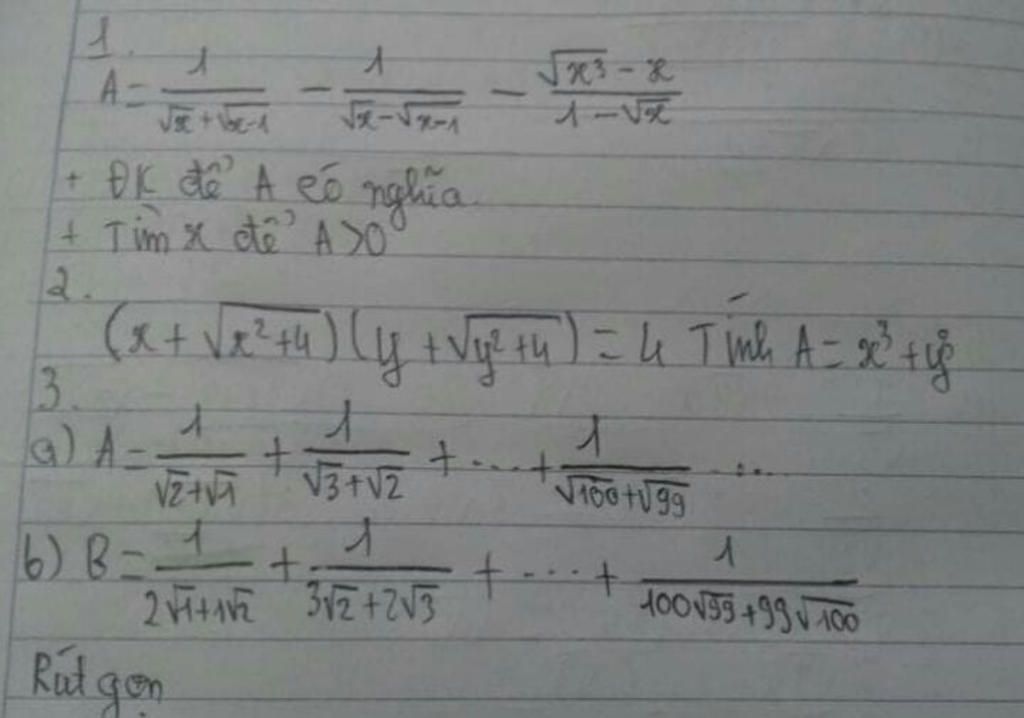 1.
A = 1/(√x+√x-1) - 1/(√x-√x-1) - (√x³ - x)/(1-√x)
+ ĐK để A có nghĩa.
+ Tìm x để A>0
2.
(x + √x²+4)(y + √y²+4) = 4 Tính A = x³ + y³
3.
a) A = 1/(√2+√1) + 1/(√3+√2) + .... + 1/(√100+√99) ....
b) B = 1/(2√1+1√2) + 1/(3√2+2√3) + .... + 1/(100√99+99√100)
Rút gọn